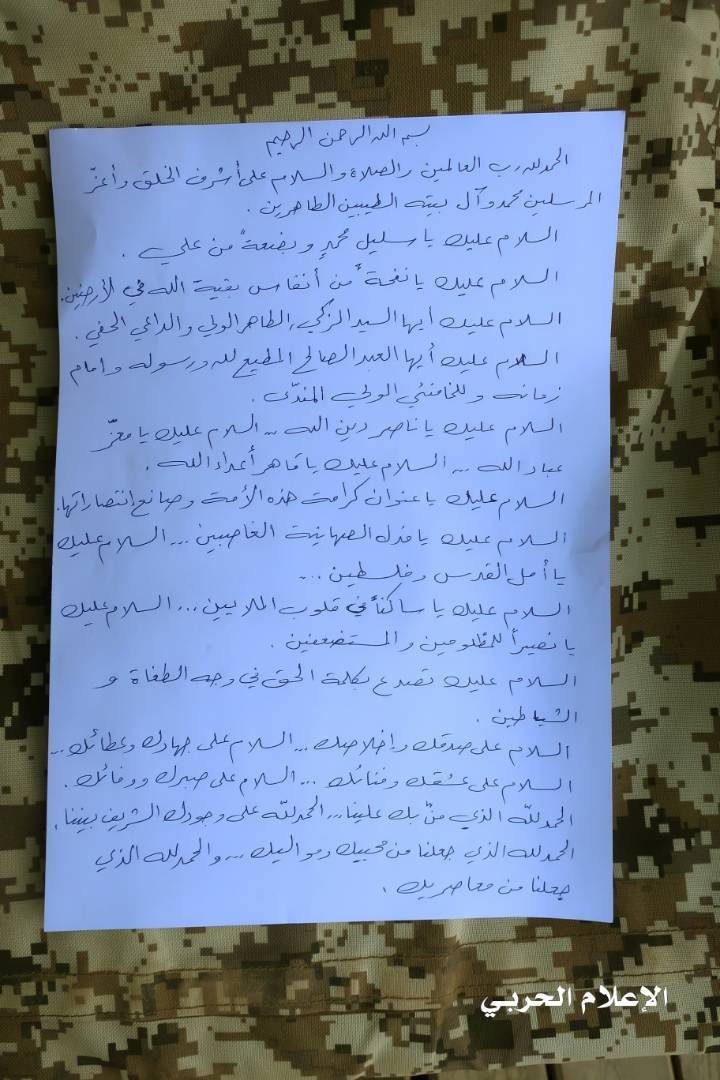 بسم الله الرحمن الرحيم
الحمد لله رب العالمين والصلاة والسلام على أشرف الخلق وأعزّ
المرسلين محمد وآل بيته الطيبين الطاهرين .
السلام عليك يا سليل محمدٍ وبضعةً من علي .
السلام عليك يا نفحةً من أنفاس بقية الله في الأرضين.
السلام عليك أيها السيد الزكي، الطاهر الولي والداعي الحفي .
السلام عليك أيها العبد الصالح المطيع لله ورسوله وإمام
زمانه وللخامنئي الولي المفدّى .
السلام عليك يا ناصر دين الله ... السلام عليك يا معزّ
عباد الله ... السلام عليك يا قاهر أعداء الله .
السلام عليك يا عنوان كرامة هذه الأمة وصانع انتصاراتها.
السلام عليك يا مذل الصهاينة الغاصبين ... السلام عليك
يا أمل القدس وفلسطين ...
السلام عليك يا ساكناً في قلوب الملايين ... السلام عليك
يا نصيراً للمظلومين والمستضعفين .
السلام عليك تصدع بكلمة الحق في وجه الطغاة و
الشياطين .
السلام على صدقك وإخلاصك ... السلام على جهادك وعطائك ...
السلام على عشقك وفنائك ... السلام على صبرك ووفائك .
الحمد لله الذي منّ بك علينا ... الحمد لله على وجودك الشريف بيننا .
الحمد لله الذي جعلنا من محبيك ومواليك ... والحمد لله الذي
جعلنا من معاصريك .
الإعلام الحربي